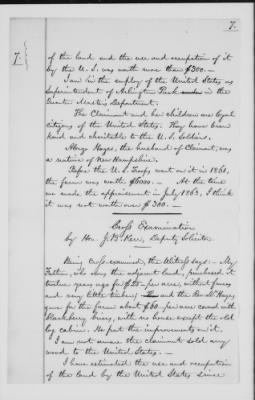 7.
7.
of the land and the use and occupation of it
by the U. S. was worth more than $300.—
I am in the employ of the United States as
Superintendent of Arlington Park in the
Quarter Masters Department.
The Claimant and her children are loyal
citizens of the United States. They have been
kind and charitable to the U. S. Soldiers.
Alonzo Hayes, the husband of Claimant, was
a native of New Hampshire.
Before the U. S. Troops went on it in 1861,
the farm was worth $6000.— At the time
we made the appraisement in July 1863, I think
it was not worth over $300.—
Cross Examination
by Hon. J. B. Kerr, Deputy Solicitor.
Being cross-examined, the Witness says:— My
Father, who owns the adjacent land, purchased it
twelve years ago for $25— per acre, without fences
and very little timber; and the Hayes
gave for the farm about $60— per acre covered with
blackberry briers, with no house except the old
log cabin. He put the improvements on it.
I am not aware the claimant sold any
wood to the United States.—
I have estimated the use and occupation
of the land by the United States since